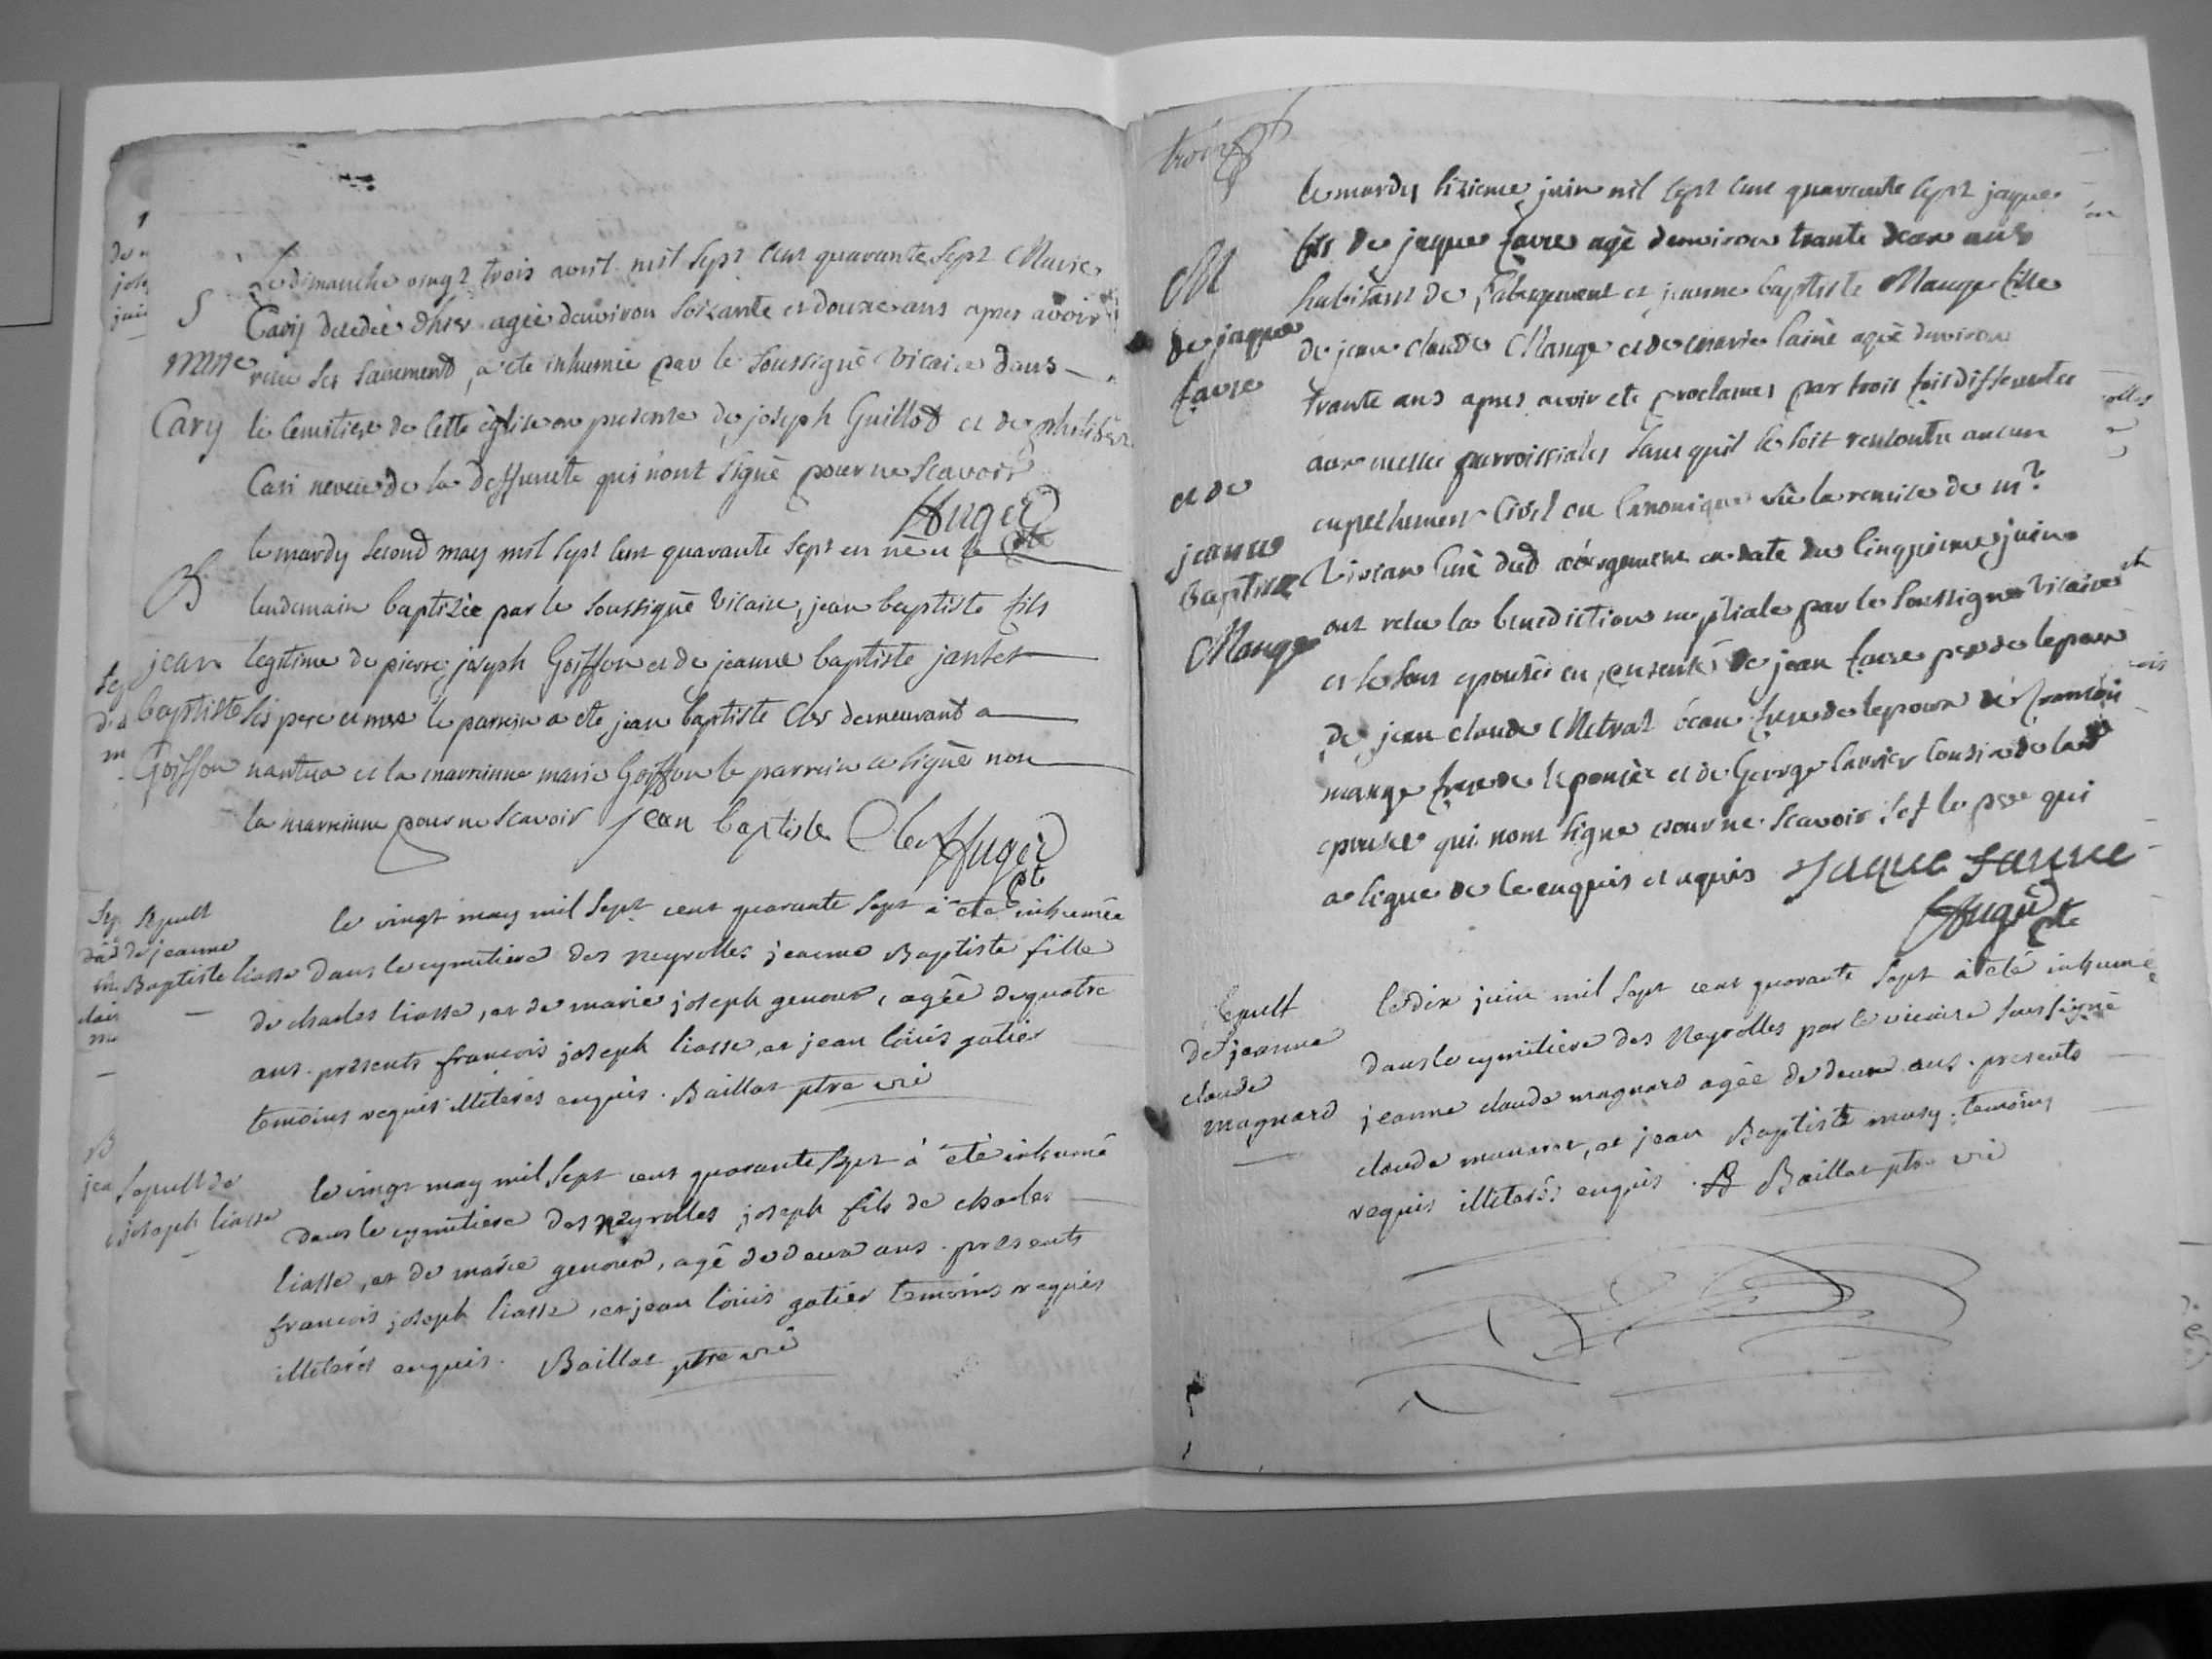 S
Marie
Cary
Le dimanche vingt trois avril mil sept cent quarante sept Marie
Cary decedée d'hier agée denviron soixante et douze ans apres avoir
recu ses sacrements, a ete inhumée par le soussigné vicaire dans
le cemitiere de cette église en presence de joseph Guillot et de philibert
Cari neveu de la deffuncte qui n'ont signé pour ne scavoir
Augeid
pte
B
jean
baptiste
Goiffon
le mardy second may mil sept cent quarante sept en né et le
lendemain baptisée par le soussigné vicaire, jean baptiste fils
legitime de pierre joseph Goiffon et de jeanne baptiste jantet
ses pere et mere le parrein a ete jean baptiste Cler demeurant a
nantua et la marreinne marie Goiffon le parrein a signé non
la marreinne pour ne scavoir jean baptiste Cler Augeid
pte
Sepult
de jeanne
Baptiste liasse
le vingt may mil sept cent quarante sept à été inhumée
dans le cymitiere des neyrolles jeanne Baptiste fille
de charles liasse, et de marie joseph genoux, agée de quatre
ans. présents francois joseph liasse, et jean loüis gatier
temoins requis illiterés enquis. Baillat ptre vié
Sepult de
joseph liasse
le vingt may mil sept cent quarante sept à été inhumé
dans le cymitiere des neyrolles joseph fils de charles
liasse, et de marie genoux, agé de deux ans. présents
francois joseph liasse, et jean loüis gatier temoins requis
illiterés enquis. Baillat ptre vié
trois
M
de jaque
favre
et de
jeanne
baptiste
Mange
le mardy sizieme juin mil sept cent quarante sept jaque
fils de jaque favre agé denviron trante deux ans
habitant de l'abergement et jeanne baptiste Mange fille
de jean claude Mange et de marie lainé agée denviron
trante ans apres avoir ete proclamés par trois fois differentes
aux messes parroissiales sans quil se soit rencontré aucun
enpechement civil ou canonique vûe la remise de mr
curé dud abergement en date du cinquieme juin
ont recu la benediction nuptiale par le soussigné vicaire
et se sont epousés en presence de jean favre pere de lepoux
de jean claude Metral beau frere de lepoux de francois
mange frere de lepousée et de George carrier cousin de lad
epousee qui nont signé pour ne scavoir sof le pere qui
a signé de ce enquis et requis jaque faure
Augeid
pte
Sepult
de jeanne
claude
magnard
le dix juin mil sept cent quarante sept à été inhumée
dans le cymitiere des Neyrolles par le vicaire soussigné
jeanne claude magnard agée de deux ans. presents
claude, et jean Baptiste masy. temoins
requis illiterés enquis. B Baillat ptre vié